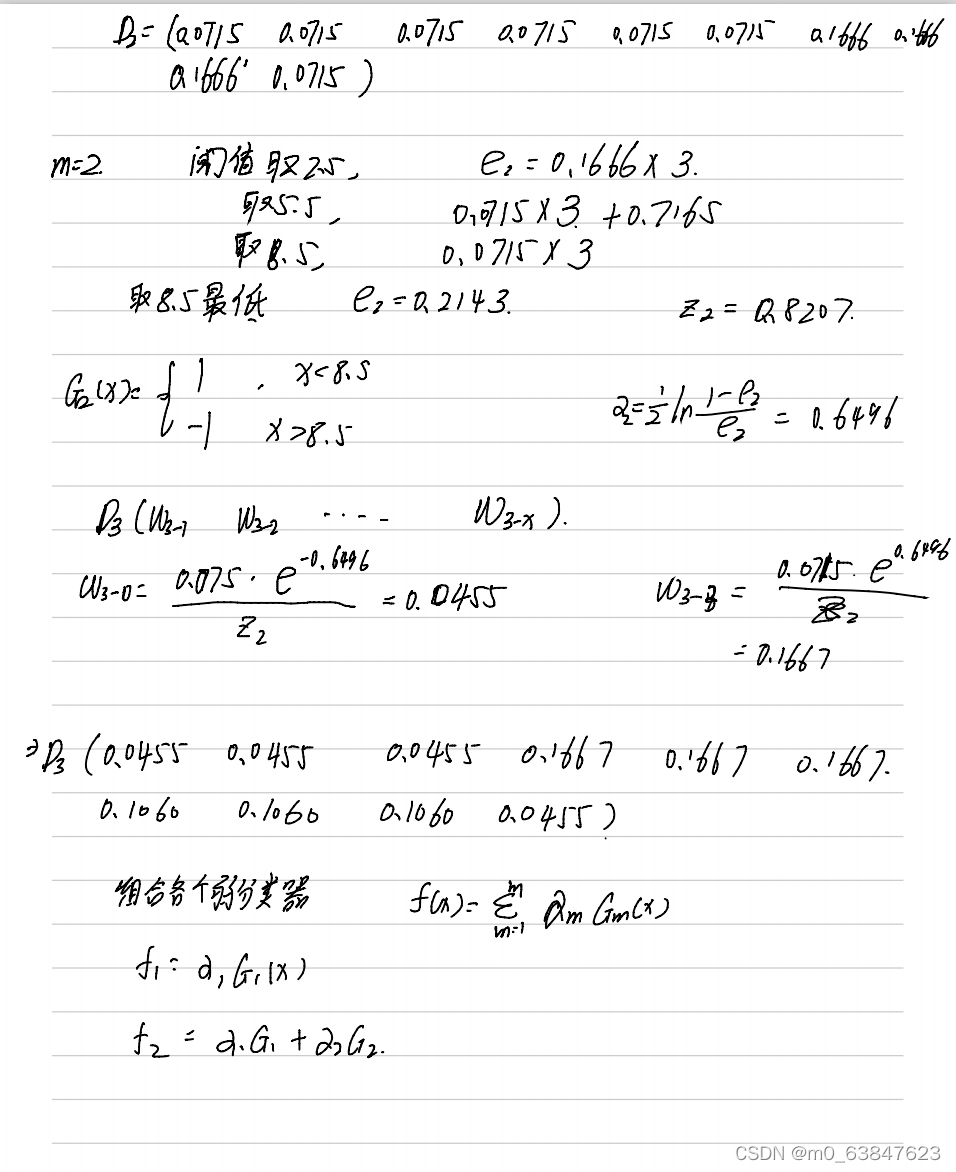 D₂= (0.0715 0.0715 0.0715 0.0715 0.0715 0.0715 0.1666 0.1666
0.1666 0.0715 )
m=2. 阈值取2.5, e₂ = 0.1666 × 3.
取5.5, 0.0715 × 3 + 0.7165
取8.5, 0.0715 × 3
取8.5最低 e₂ = 0.2143. Z₂ = 0.8207.
G₂(x)= { 1 , x<8.5
-1 x>8.5
α₂=½ ln (1-e₂)/e₂ = 0.6496
D₃ (W₃₋₁ W₃₋₂ ····- W₃₋ₓ).
W₃₋₀= (0.075 · e^(-0.6496))/Z₂ = 0.0455 W₃₋₃ = (0.0715 · e^(0.6496))/Z₂
= 0.1667
D₃ (0.0455 0.0455 0.0455 0.1667 0.1667 0.1667.
0.1060 0.1060 0.1060 0.0455 )
组合各个弱分类器 f(x)= Σ_(m=1)^m αm Gm(x)
f₁ = α₁ G₁(x)
f₂ = α₁G₁ + α₂G₂.
CSDN @m0_63847623